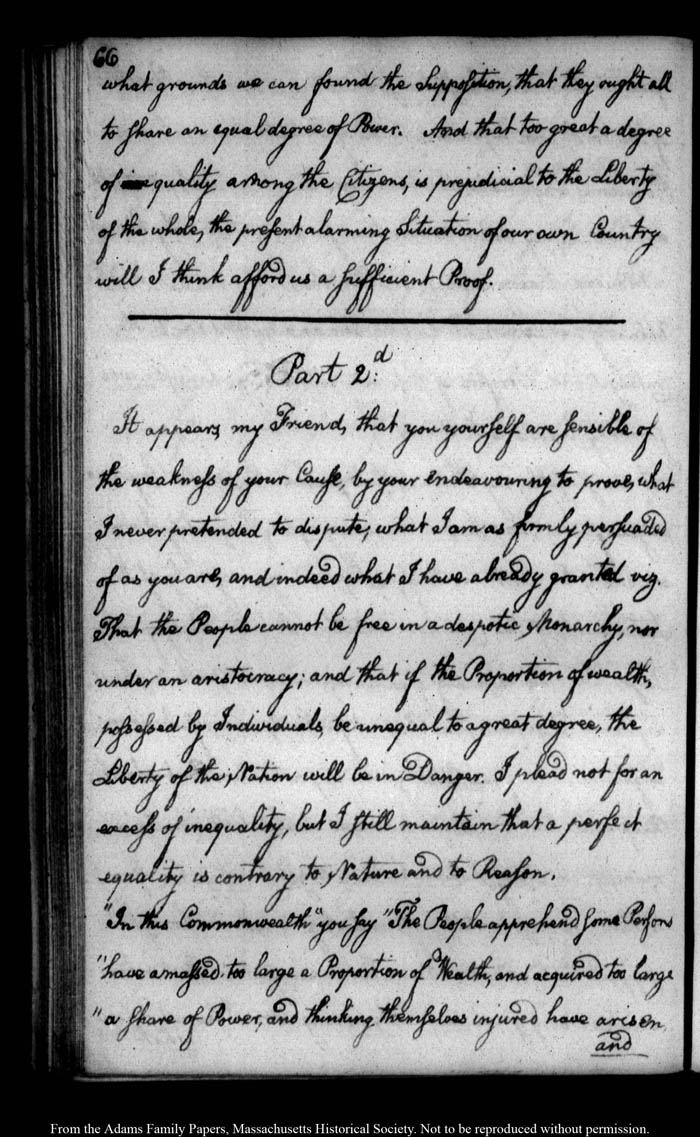 66
what grounds we can found the supposition, that they ought all
to share an equal degree of Power. And that too great a degree
of equality among the Citizens, is prejudicial to the Liberty
of the whole, the present alarming Situation of our own Country
will I think afford us a sufficient Proof.
Part 2.d
It appears, my Friend, that you yourself are sensible of
the weakness of your Cause, by your endeavouring to prove, what
I never pretended to dispute; what I am as firmly persuaded
of as you are, and indeed what I have already granted viz.
That the People cannot be free in a despotic Monarchy, nor
under an aristocracy; and that if the Proportion of wealth,
possessed by Individuals, be unequal to a great degree, the
Liberty of the Nation will be in Danger. I plead not for an
excess of inequality, but I still maintain that a perfect
equality is contrary to Nature and to Reason.
"In this Commonwealth" you say "The People apprehend some Persons
"have amassed too large a Proportion of Wealth, and acquired too large
"a share of Power, and thinking themselves injured have arisen
and
From the Adams Family Papers, Massachusetts Historical Society. Not to be reproduced without permission.